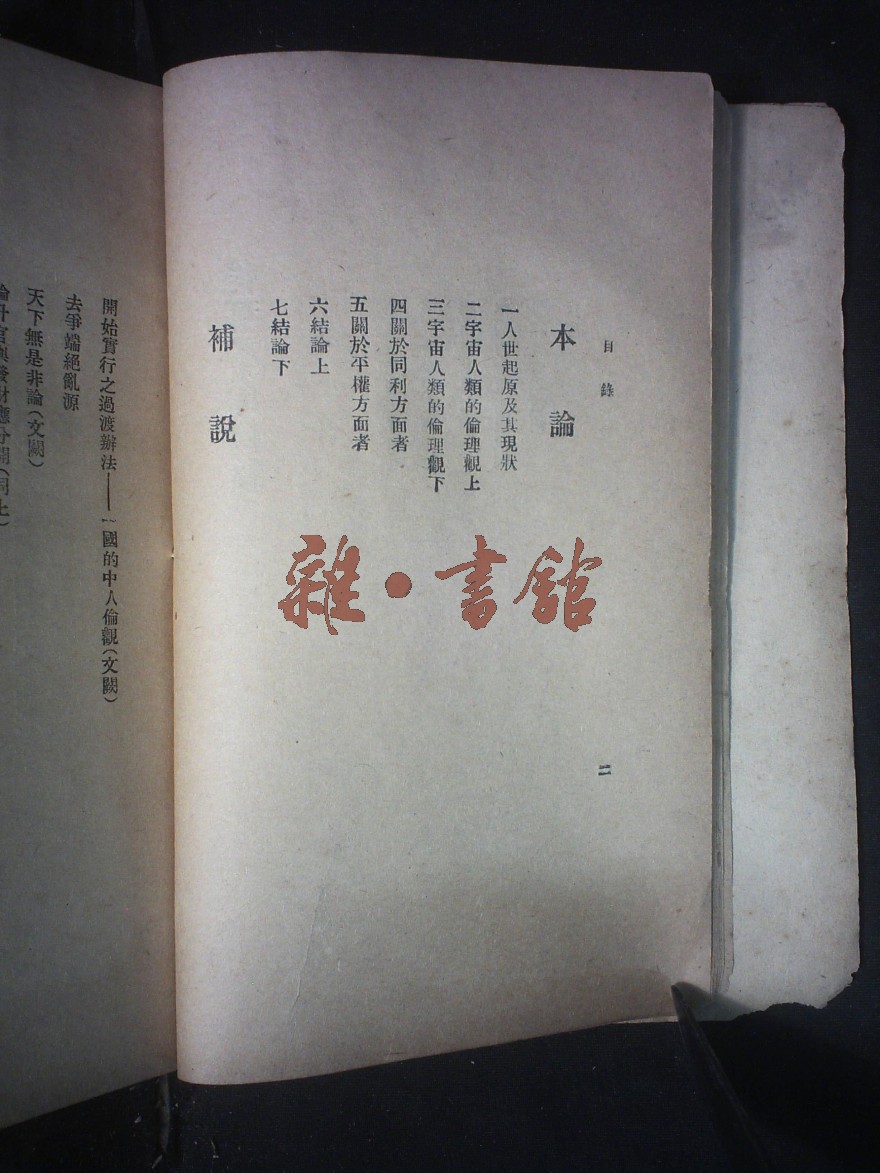 目錄
二
本論
一人世起原及其現狀
二宇宙人類的倫理觀上
三宇宙人類的倫理觀下
四關於同利方面者
五關於平權方面者
六結論上
七結論下
補說
開始實行之過渡辦法——國的中人倫觀(文闕)
去爭端絕亂源
天下無是非論(文闕)
論升官與發財應分開(同上)
雜·書館